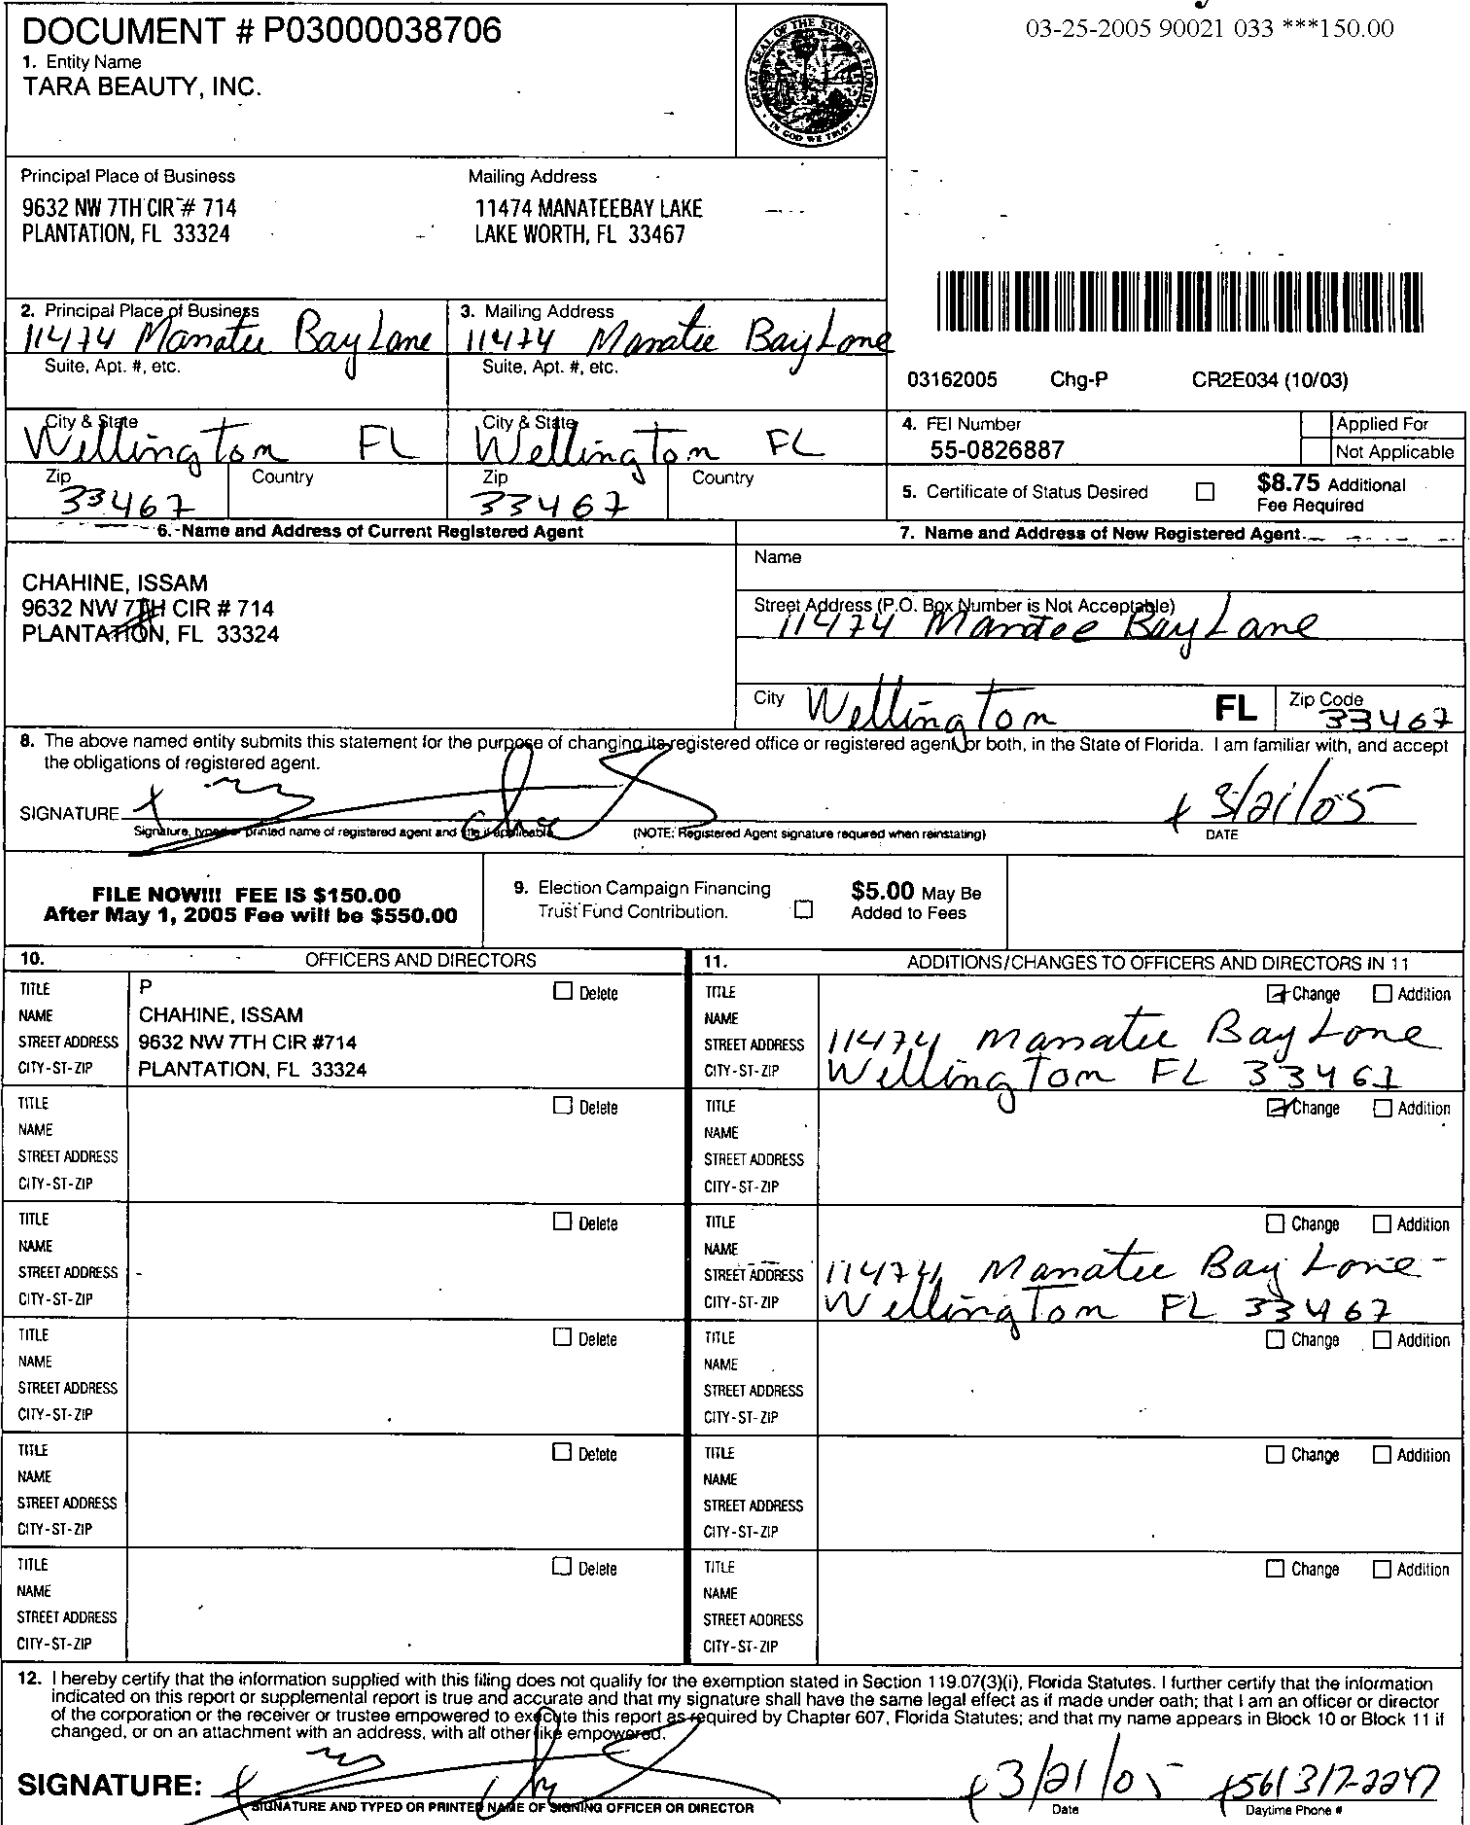 03-25-2005 90021 033 ***150.00
DOCUMENT # P03000038706
1. Entity Name
TARA BEAUTY, INC.
GREAT SEAL OF THE STATE OF FLORIDA
IN GOD WE TRUST
Principal Place of Business
9632 NW 7TH CIR # 714
PLANTATION, FL 33324
Mailing Address
11474 MANATEEBAY LAKE
LAKE WORTH, FL 33467
2. Principal Place of Business
11474 Manatee Bay Lane
Suite, Apt. #, etc.
City & State
Wellington FL
Zip
33467
Country
3. Mailing Address
11474 Manatee Bay Lane
Suite, Apt. #, etc.
City & State
Wellington FL
Zip
33467
Country
03162005 Chg-P CR2E034 (10/03)
4. FEI Number
55-0826887
Applied For
Not Applicable
5. Certificate of Status Desired
$8.75 Additional
Fee Required
6. Name and Address of Current Registered Agent
CHAHINE, ISSAM
9632 NW 7TH CIR # 714
PLANTATION, FL 33324
7. Name and Address of New Registered Agent
Name
Street Address (P.O. Box Number is Not Acceptable)
11474 Manatee Bay Lane
City Wellington FL Zip Code 33467
8. The above named entity submits this statement for the purpose of changing its registered office or registered agent, or both, in the State of Florida. I am familiar with, and accept
the obligations of registered agent.
SIGNATURE
3/21/05
Signature, typed or printed name of registered agent and title if applicable.
(NOTE: Registered Agent signature required when reinstating)
DATE
FILE NOW!!! FEE IS $150.00
After May 1, 2005 Fee will be $550.00
9. Election Campaign Financing
Trust Fund Contribution.
$5.00 May Be
Added to Fees
10. OFFICERS AND DIRECTORS
TITLE P Delete
NAME CHAHINE, ISSAM
STREET ADDRESS 9632 NW 7TH CIR #714
CITY-ST-ZIP PLANTATION, FL 33324
TITLE Delete
NAME
STREET ADDRESS
CITY-ST-ZIP
TITLE Delete
NAME
STREET ADDRESS
CITY-ST-ZIP
TITLE Delete
NAME
STREET ADDRESS
CITY-ST-ZIP
TITLE Delete
NAME
STREET ADDRESS
CITY-ST-ZIP
TITLE Delete
NAME
STREET ADDRESS
CITY-ST-ZIP
11. ADDITIONS/CHANGES TO OFFICERS AND DIRECTORS IN 11
TITLE Change Addition
NAME
STREET ADDRESS 11474 Manatee Bay Lane
CITY-ST-ZIP Wellington FL 33467
TITLE Change Addition
NAME
STREET ADDRESS
CITY-ST-ZIP
TITLE Change Addition
NAME
STREET ADDRESS 11474 Manatee Bay Lane
CITY-ST-ZIP Wellington FL 33467
TITLE Change Addition
NAME
STREET ADDRESS
CITY-ST-ZIP
TITLE Change Addition
NAME
STREET ADDRESS
CITY-ST-ZIP
TITLE Change Addition
NAME
STREET ADDRESS
CITY-ST-ZIP
12. I hereby certify that the information supplied with this filing does not qualify for the exemption stated in Section 119.07(3)(i), Florida Statutes. I further certify that the information
indicated on this report or supplemental report is true and accurate and that my signature shall have the same legal effect as if made under oath; that I am an officer or director
of the corporation or the receiver or trustee empowered to execute this report as required by Chapter 607, Florida Statutes; and that my name appears in Block 10 or Block 11 if
changed, or on an attachment with an address, with all other like empowered.
SIGNATURE:
3/21/05 561 317-2247
SIGNATURE AND TYPED OR PRINTED NAME OF SIGNING OFFICER OR DIRECTOR
Date
Daytime Phone #